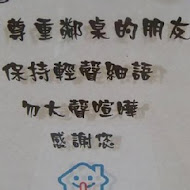 尊重鄰桌的朋友
保持輕聲細語
勿大聲喧嘩
感謝您